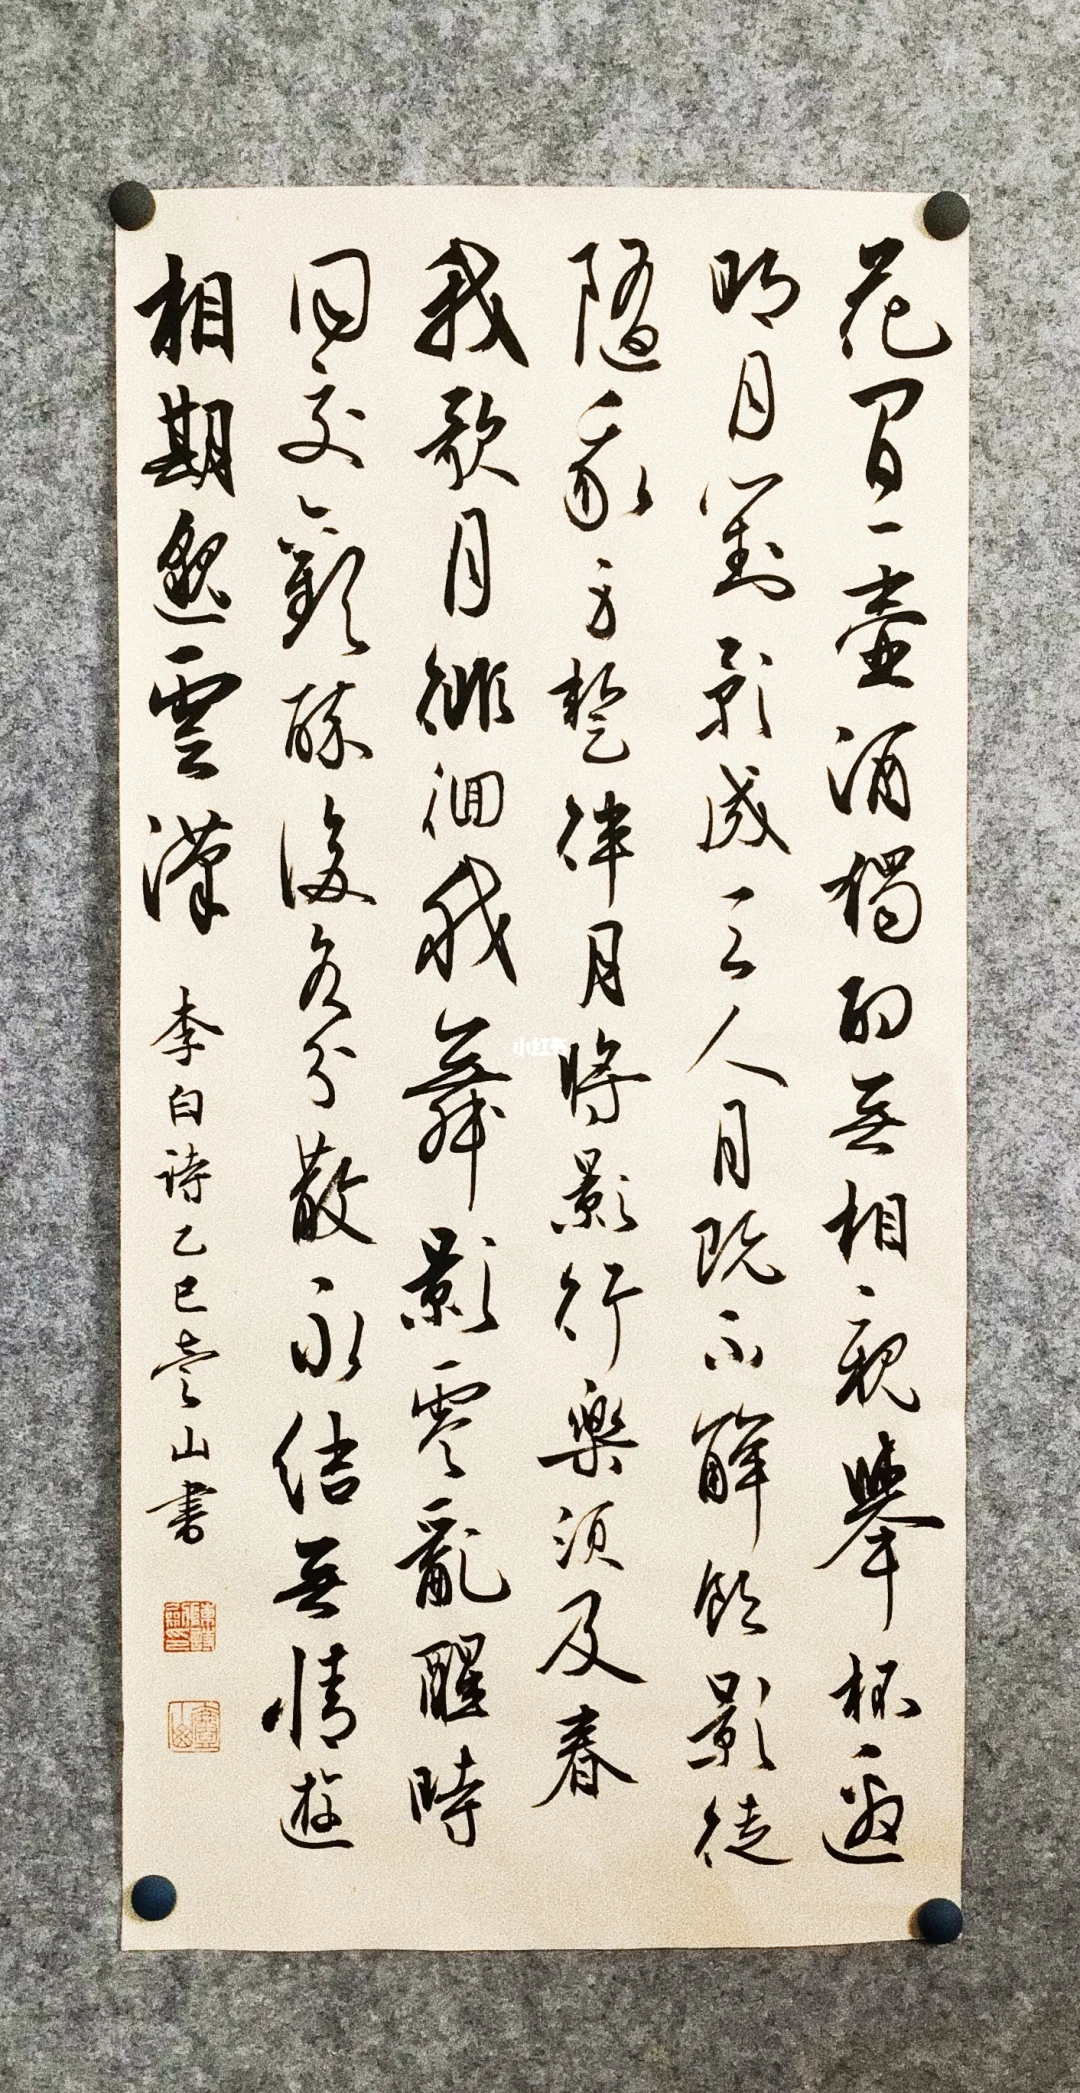 花間一壺酒獨酌無相親舉杯邀
明月對影成三人月既不解飲影徒
隨我身暫伴月將影行樂須及春
我歌月徘徊我舞影零亂醒時
同交歡醉後各分散永結無情遊
相期邈雲漢
李白詩乙巳山書
小红书